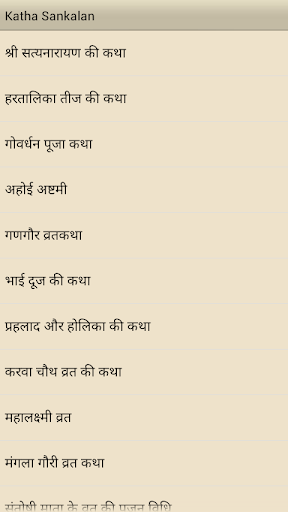 Katha Sankalan
श्री सत्यनारायण की कथा
हरतालिका तीज की कथा
गोवर्धन पूजा कथा
अहोई अष्टमी
गणगौर व्रतकथा
भाई दूज की कथा
प्रहलाद और होलिका की कथा
करवा चौथ व्रत की कथा
महालक्ष्मी व्रत
मंगला गौरी व्रत कथा
संतोषी माता के व्रत की पूजन विधि